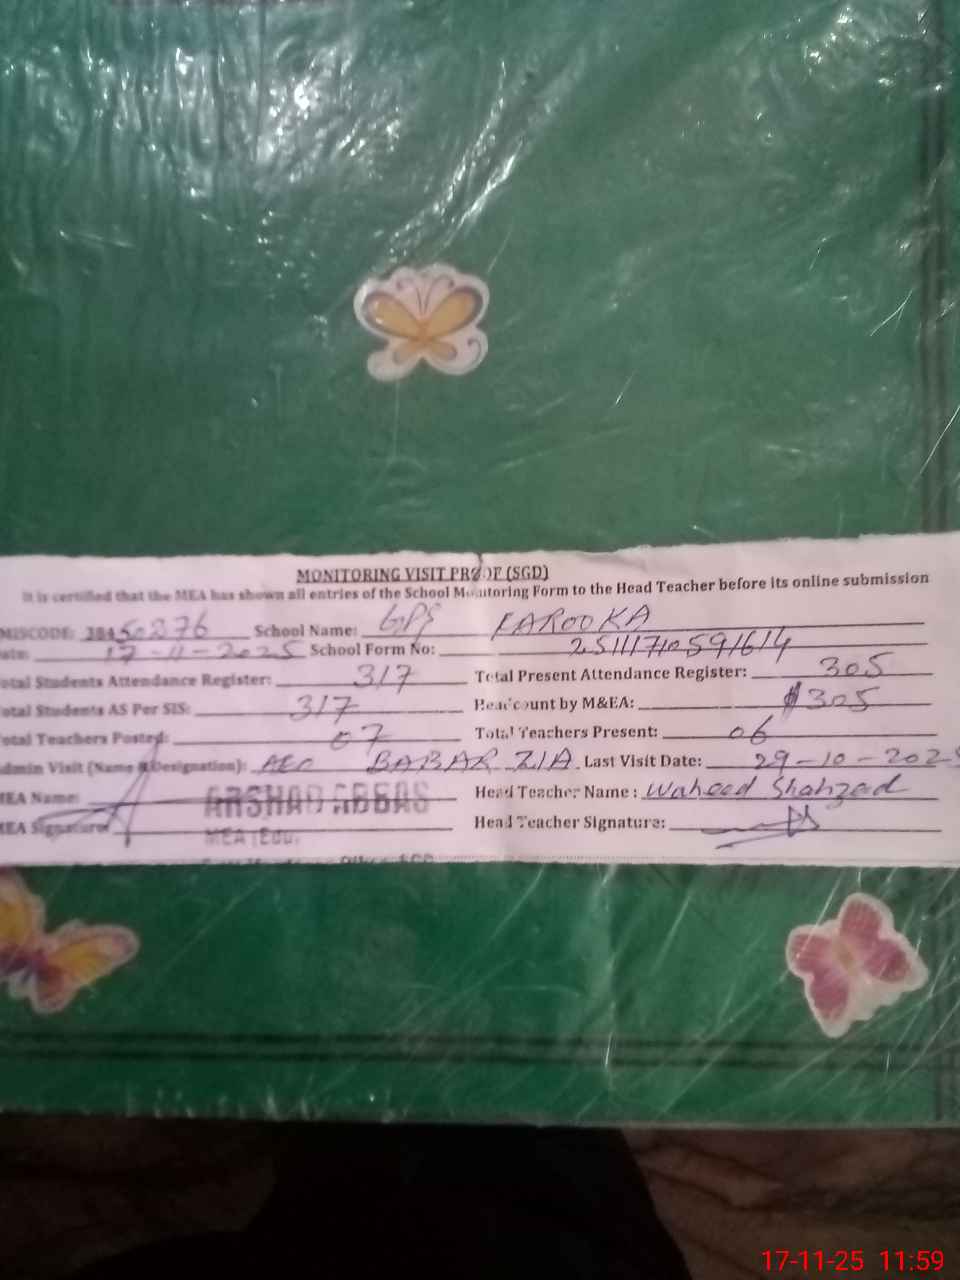 MONITORING VISIT PROOF (SGD)
It is certified that the MEA has shown all entries of the School Monitoring Form to the Head Teacher before its online submission
MISCODE: 38450276 School Name: GPS FAROOKA
Date: 17-11-2025 School Form No: 2511171059164
Total Students Attendance Register: 317 Total Present Attendance Register: 305
Total Students AS Per SIS: 317 Headcount by M&EA: 305
Total Teachers Posted: 07 Total Teachers Present: 06
Admin Visit (Name & Designation): AEO BABAR ZIA Last Visit Date: 29-10-2025
MEA Name: ARSHAD ABBAS Head Teacher Name: Waheed Shahzad
MEA Signature: MEA (Edu) Head Teacher Signature:
17-11-25 11:59